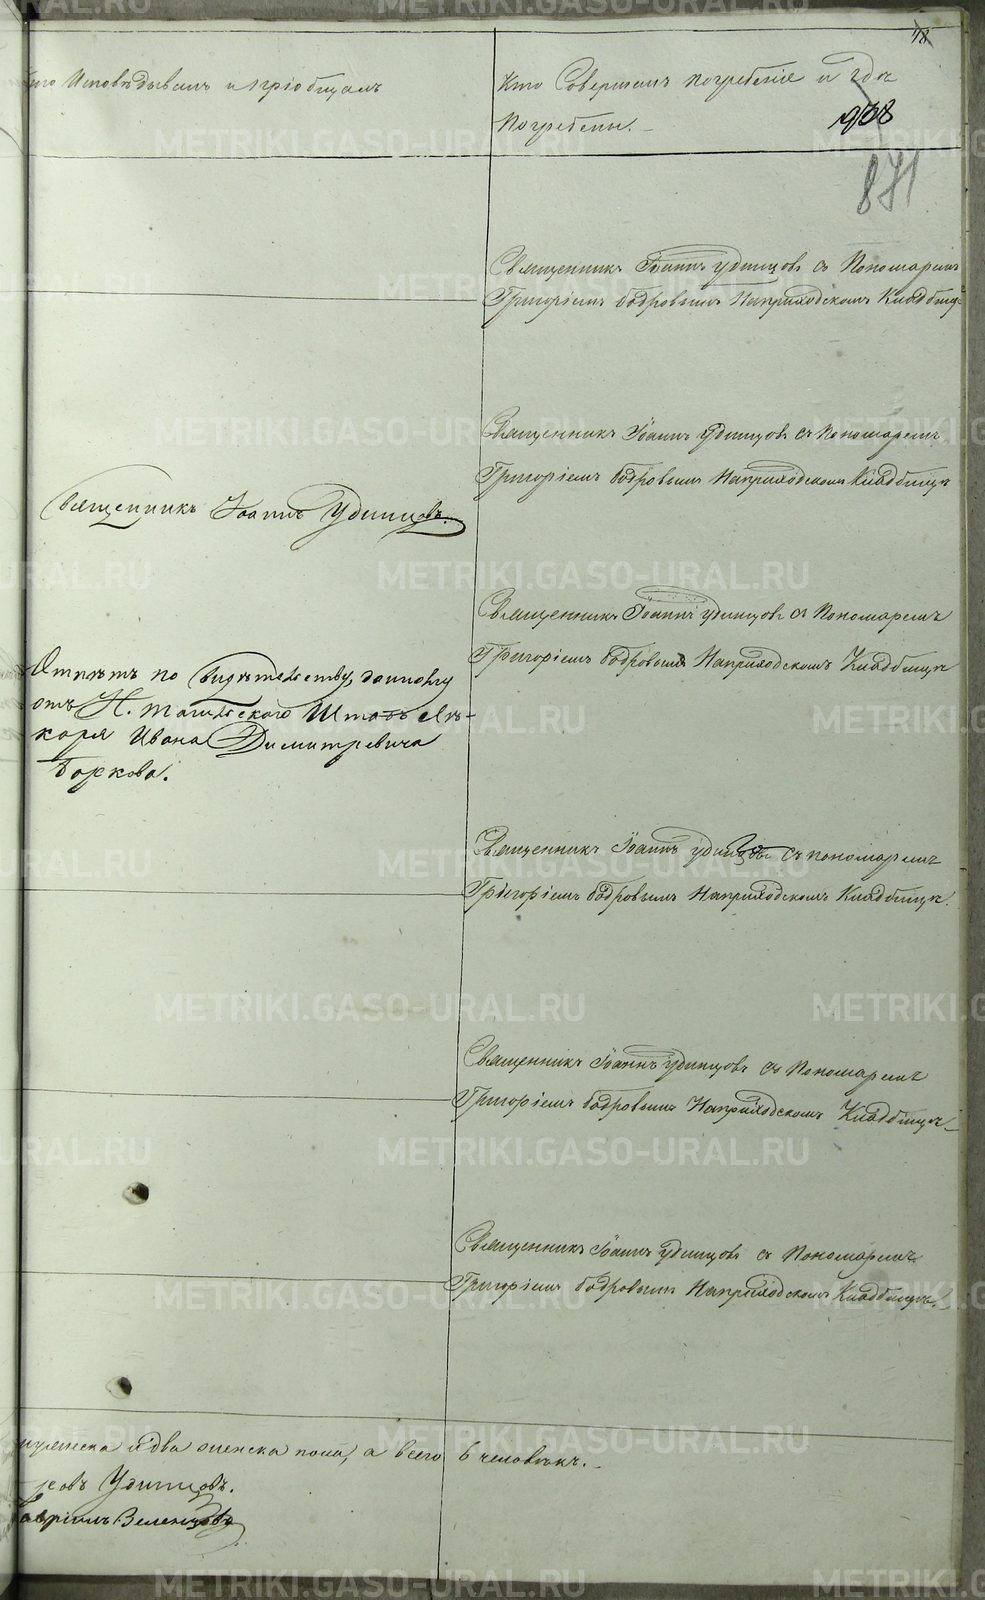 Кто Исповѣдывалъ и пріобщалъ
Кто Совершалъ погребеніе и гдѣ
Погребены.
938
871
Священникъ Іоаннъ Удинцовъ съ Пономаремъ
Григоріемъ Бобровымъ На приходскомъ Кладбищѣ
Священникъ Іоаннъ Удинцовъ съ Пономаремъ
Григоріемъ Бобровымъ На приходскомъ Кладбищѣ
Священникъ Іоаннъ Удинцовъ.
Священникъ Іоаннъ Удинцовъ съ Пономаремъ
Григоріемъ Бобровымъ На приходскомъ Кладбищѣ
Отпѣтъ по Свидѣтельству, данному
отъ Н. Тагильскаго Штабъ Лѣ-
каря Ивана Димитревича
Боркова.
Священникъ Іоаннъ Удинцовъ съ пономаремъ
Григоріемъ Бобровымъ На приходскомъ Кладбищѣ.
Священникъ Іоаннъ Удинцовъ съ Пономаремъ
Григоріемъ Бобровымъ На приходскомъ Кладбищѣ
Священникъ Іоаннъ Удинцовъ съ Пономаремъ
Григоріемъ Бобровымъ На приходскомъ Кладбищѣ.
мужеска и два женска пола, а всего 6 человѣкъ.
Удинцовъ.
Гавріилъ Зеленцовъ
METRIKI.GASO-URAL.RU